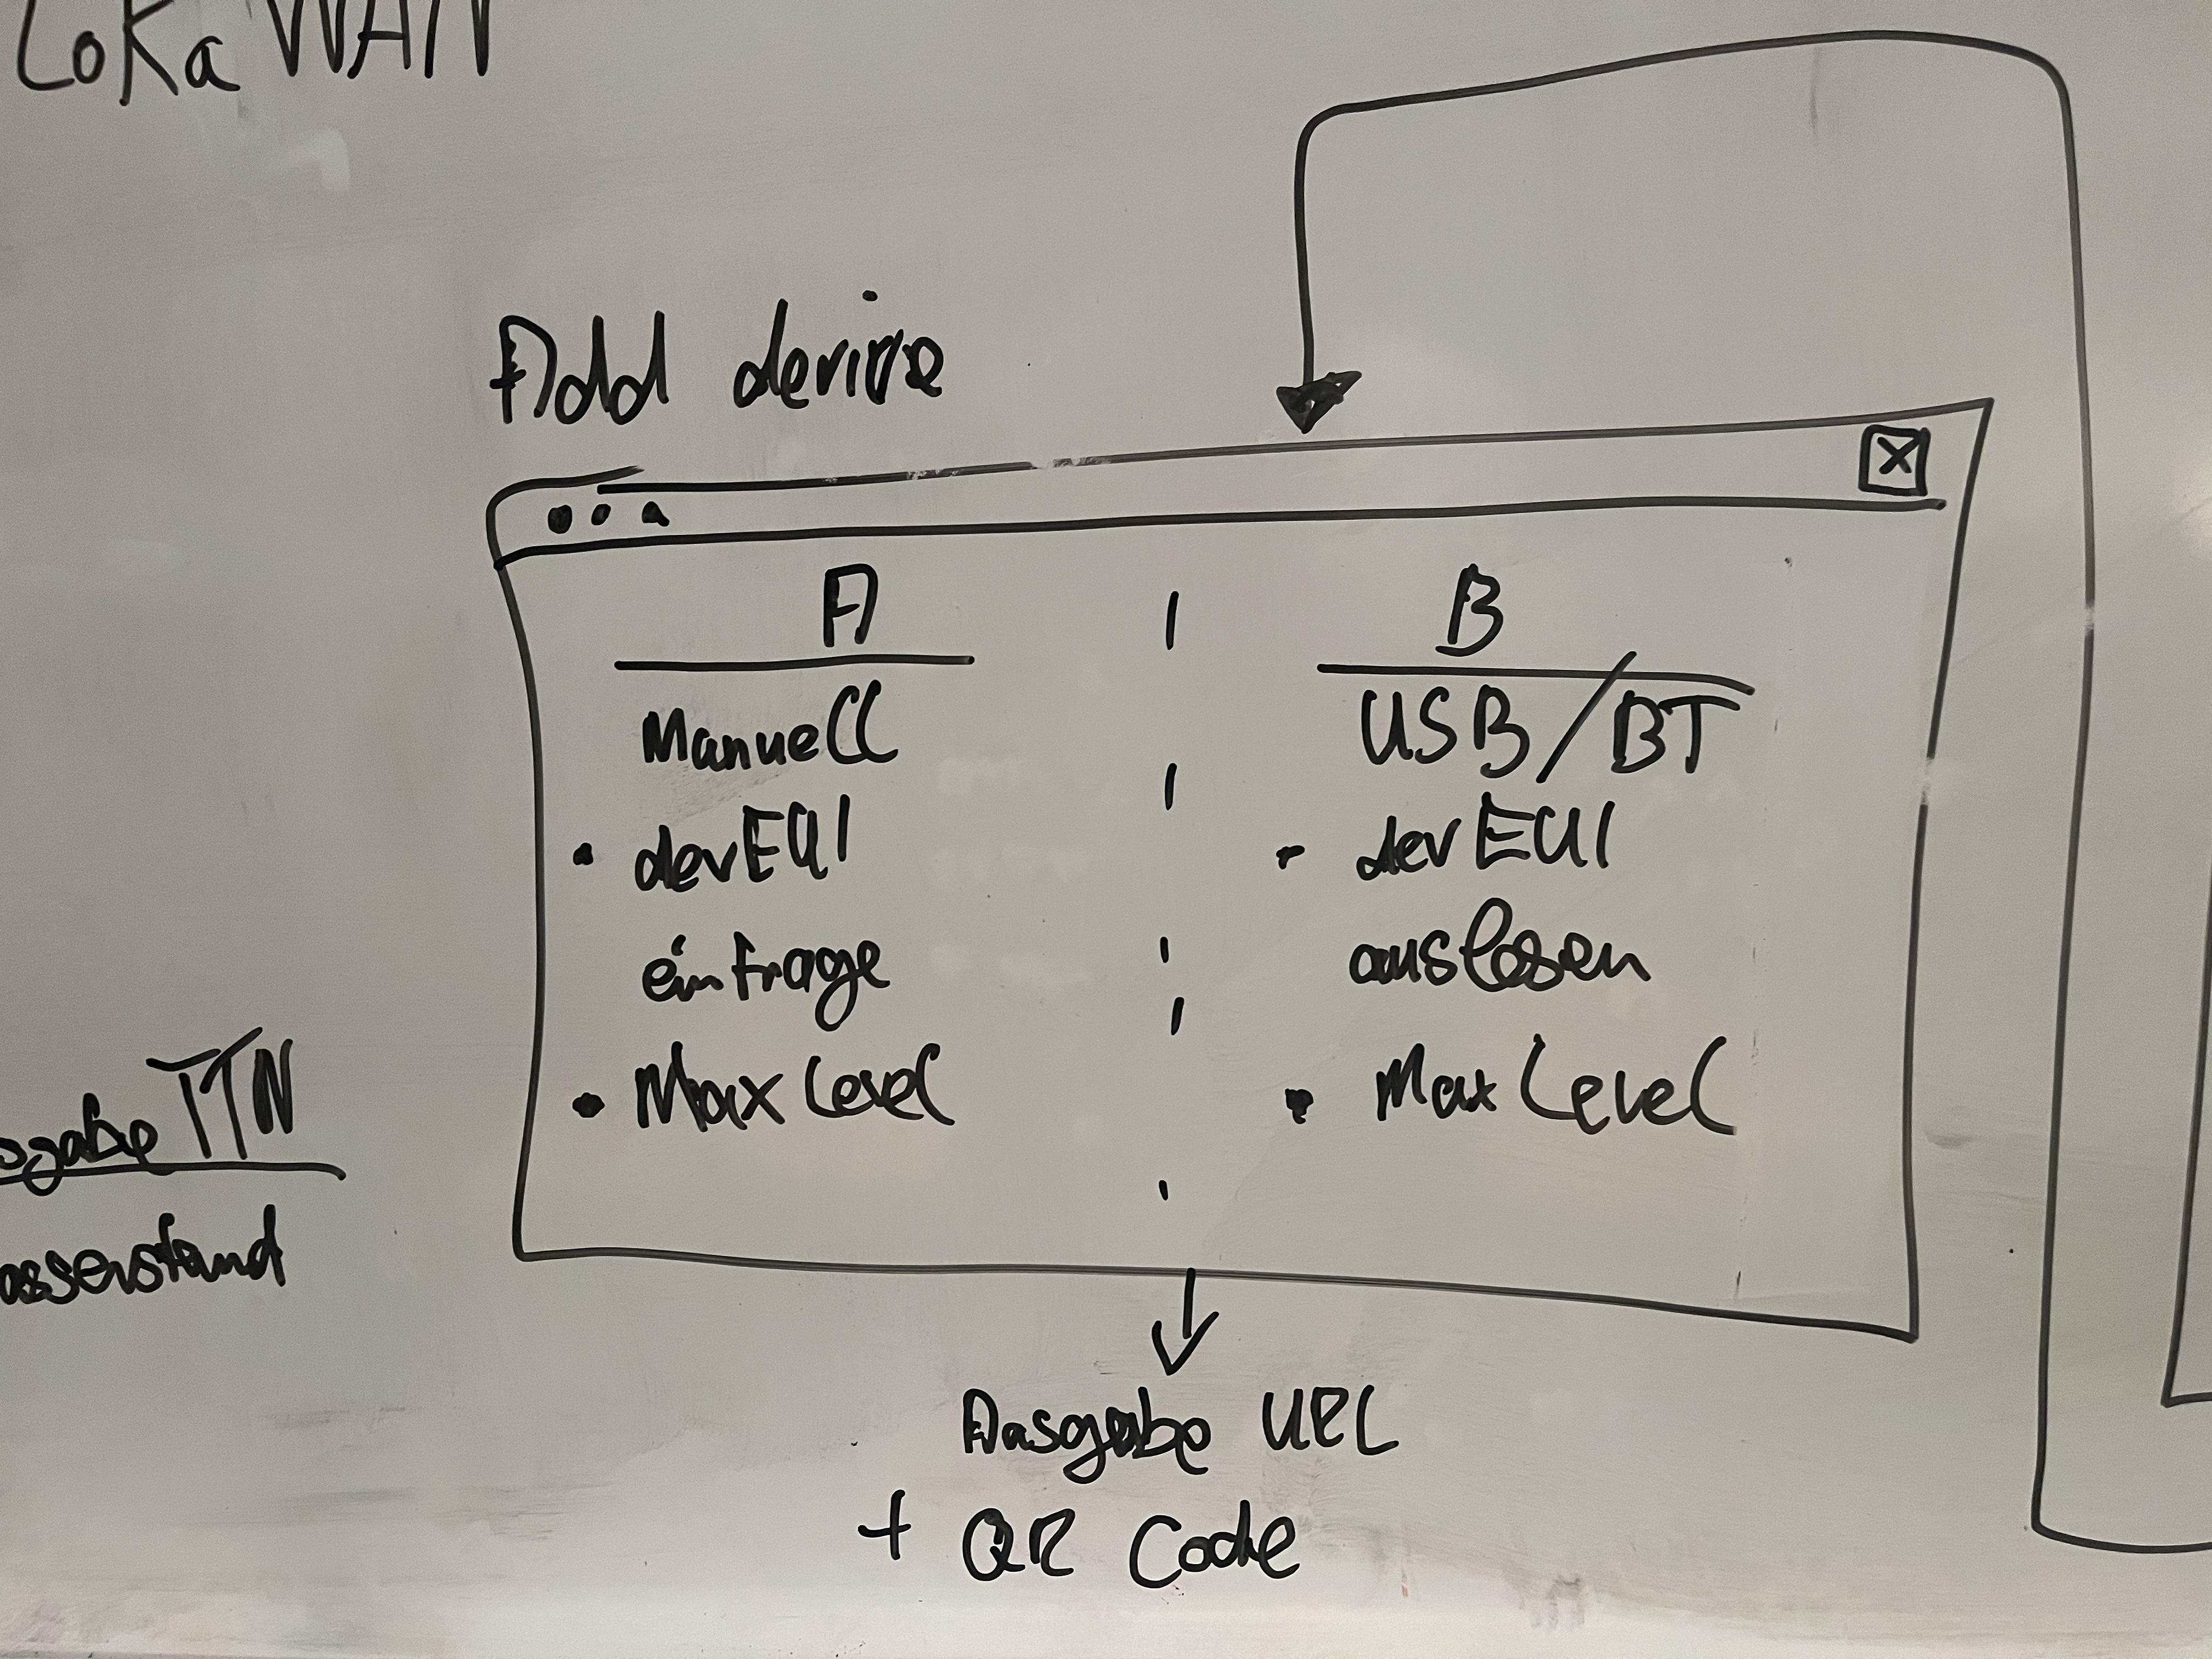 LoRaWAN
Add device
x
A
Manuell
• devEUI
eintrage
• Max Level
B
USB/BT
• devEUI
auslesen
• Max Level
TTN
Ausgabe URL
+ QR Code